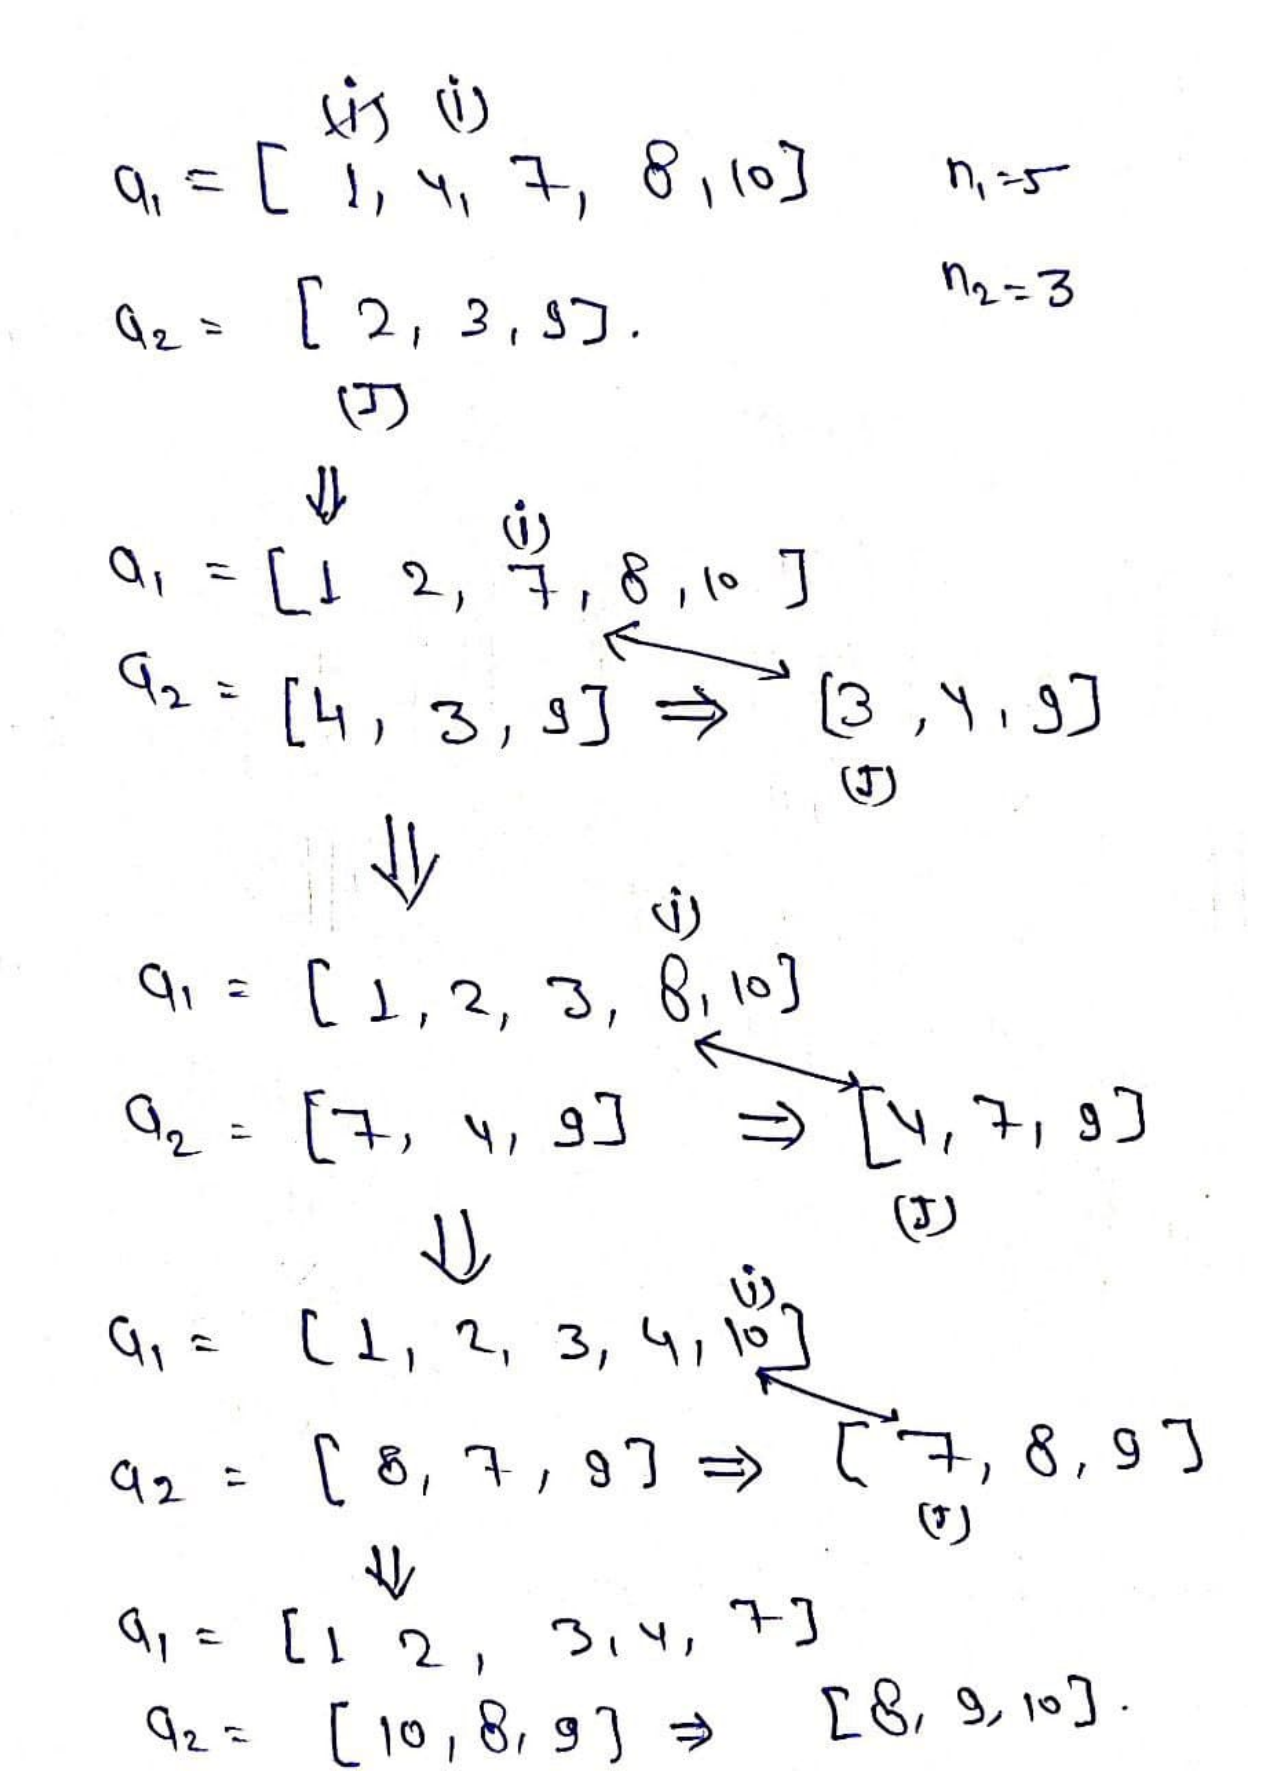 (i) (i)
a₁ = [ 1, 4, 7, 8, 10] n₁=5
n₂=3
a₂ = [ 2, 3, 9].
(J)
⇓
(i)
a₁ = [1 2, 7, 8, 10 ]
a₂ = [4, 3, 9] ⇒ [3, 4, 9]
(J)
⇓
(i)
a₁ = [ 1, 2, 3, 8, 10]
a₂ = [7, 4, 9] ⇒ [4, 7, 9]
(J)
⇓
(i)
a₁ = [ 1, 2, 3, 4, 10]
a₂ = [ 8, 7, 9] ⇒ [ 7, 8, 9]
(J)
⇓
a₁ = [1 2, 3, 4, 7]
a₂ = [ 10, 8, 9] ⇒ [8, 9, 10].